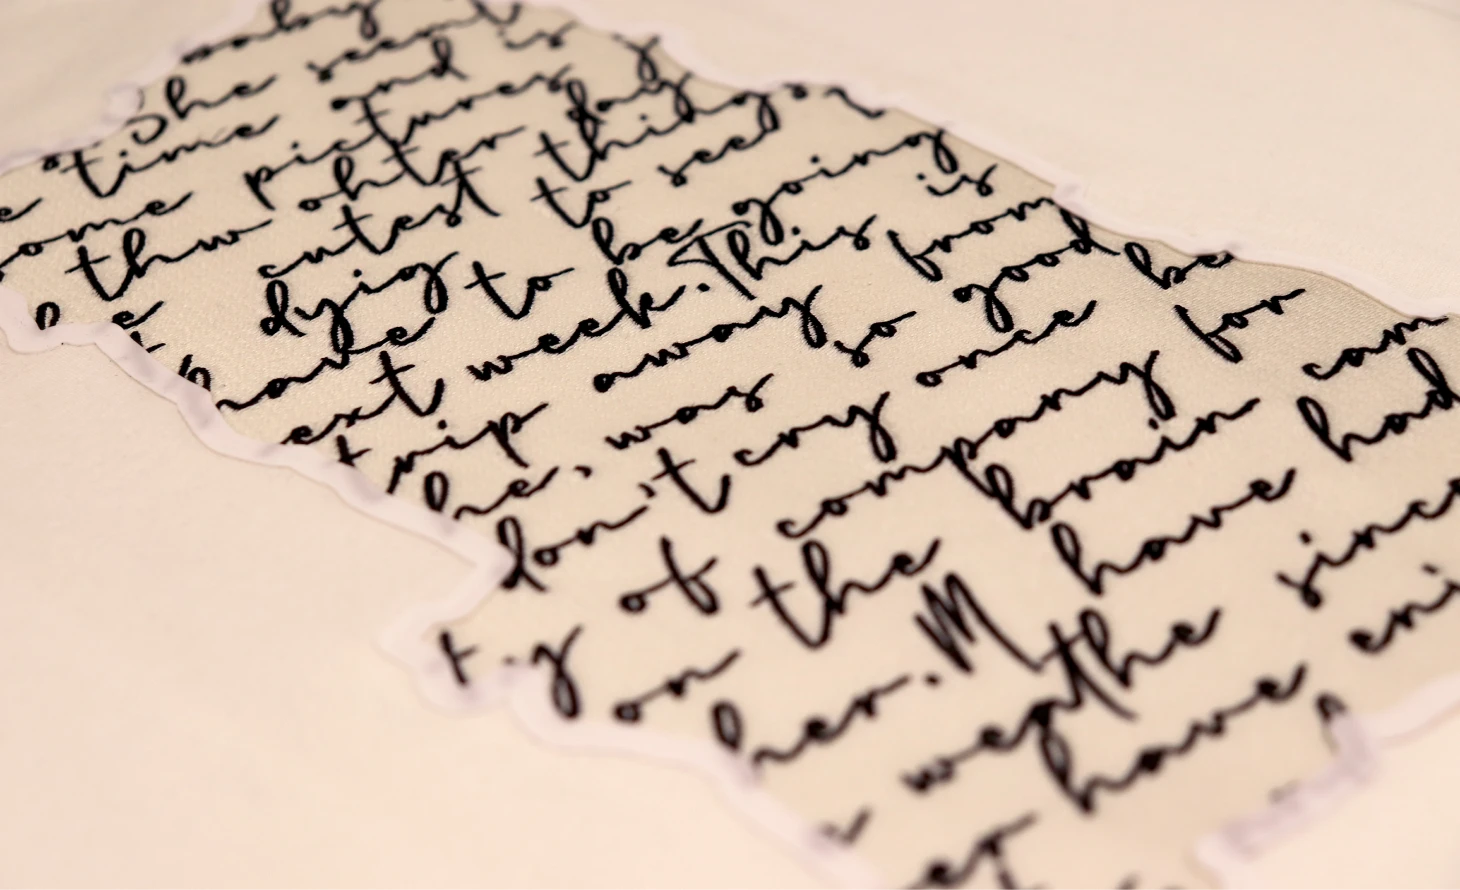 baby
She seemt
time and is
some pictures
thw ohter day
cutest things,
dyig to see
have to be going
ext week.This is
trip away from
he, was so good
don't cry once be
of company for
on the brain can
her.M have had
we the since
have